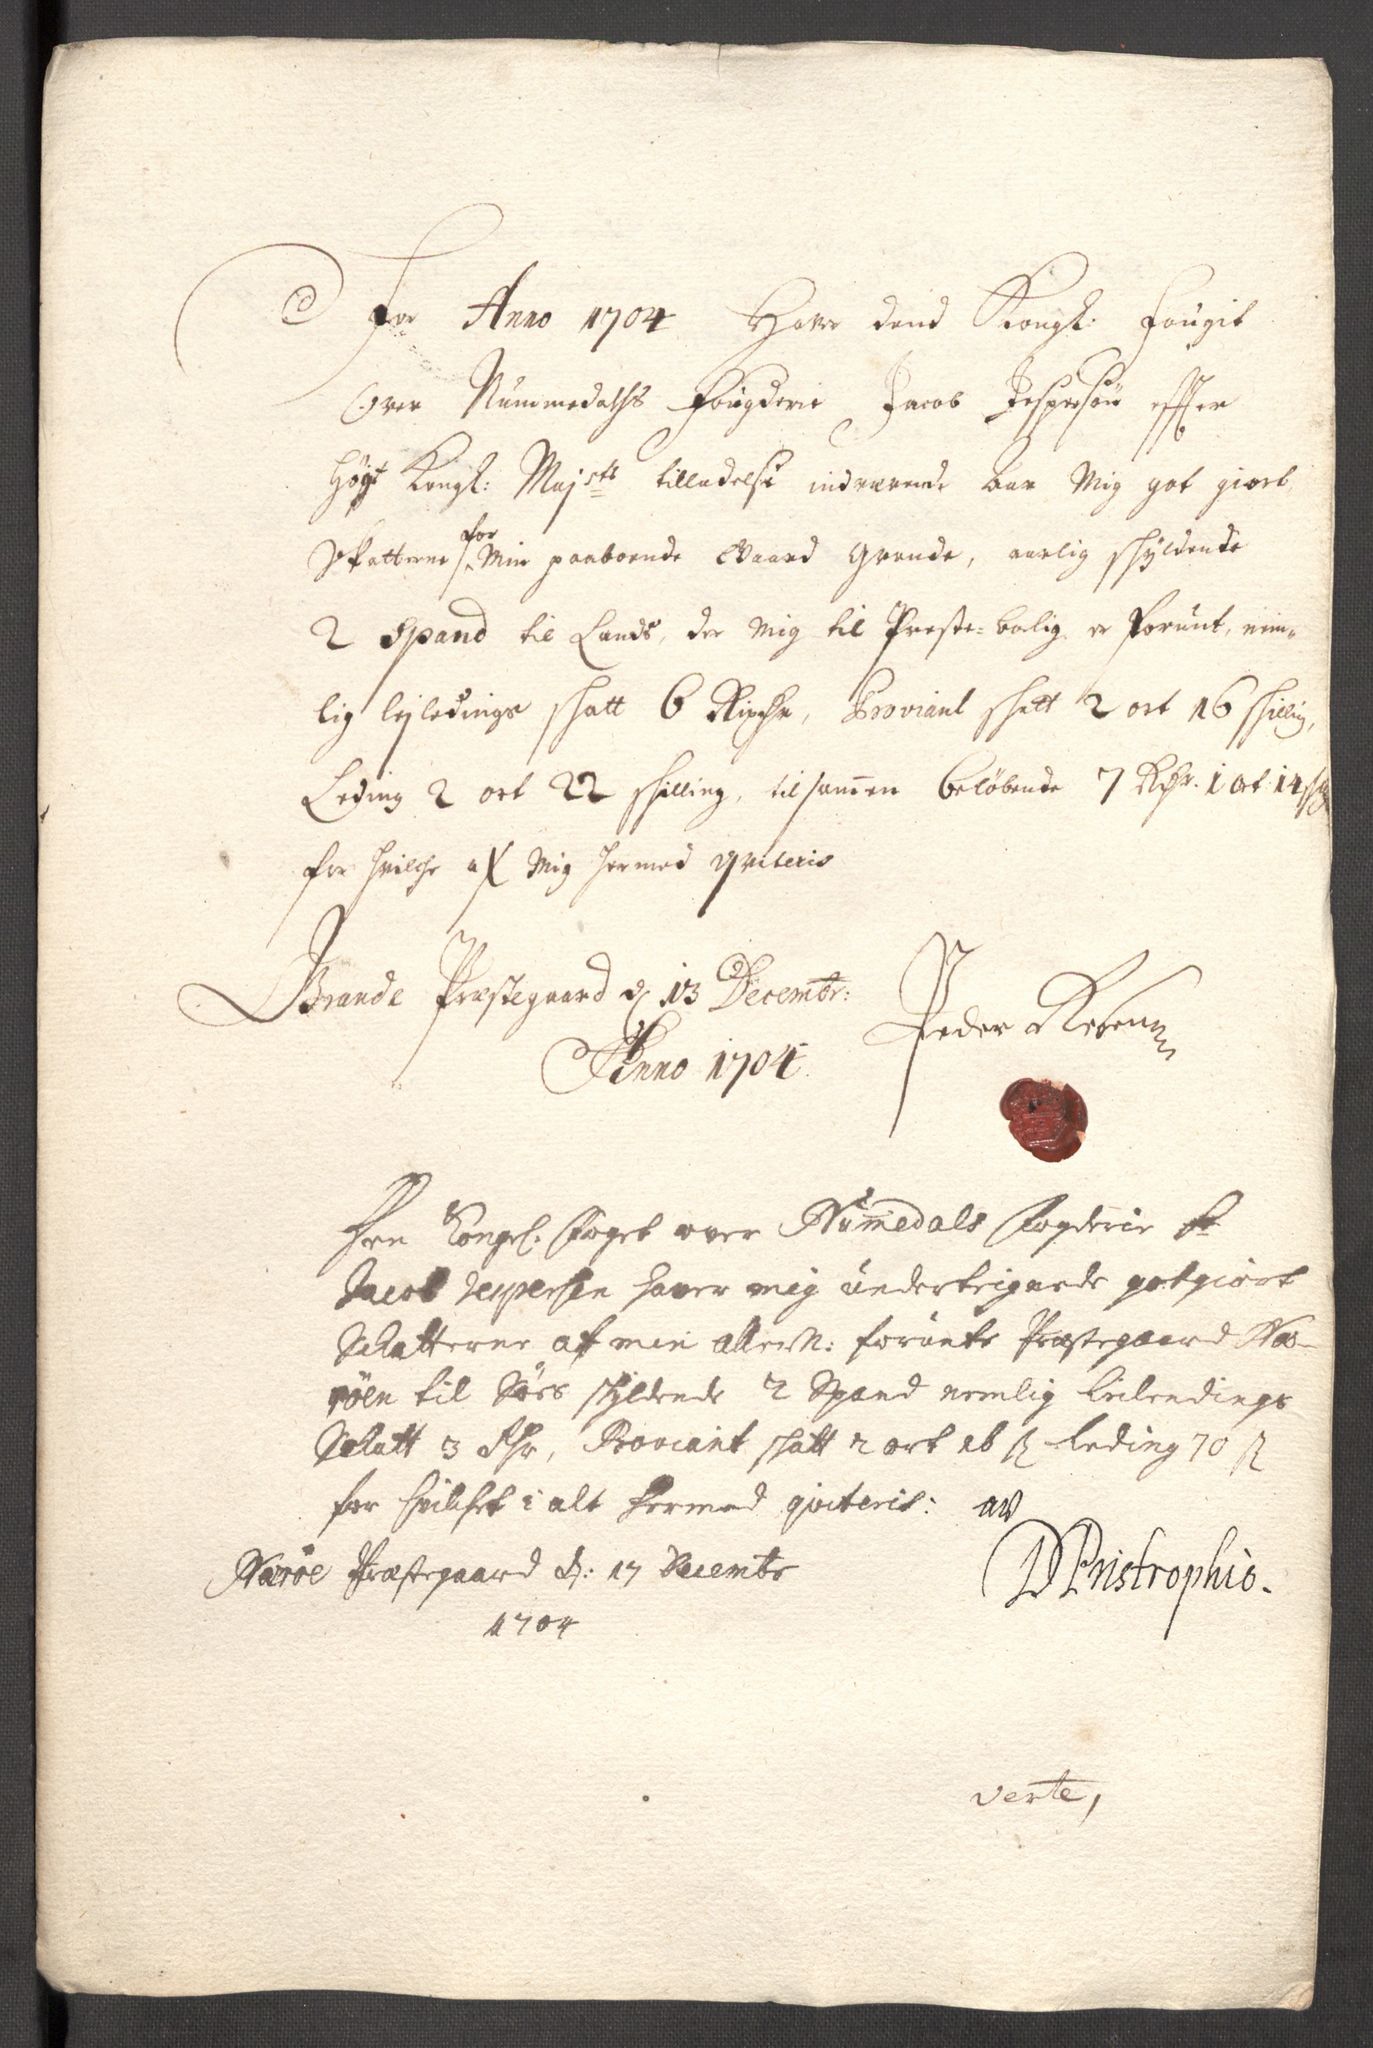 For Anno 1704 Haver dend Kongl: Fougit
Over Nummedahls Fougderie Jacob Jespersøn effter
Høyst Kongl: Maj.sts tilladelse indverende aar Mig got giort
Skatterne for Min paaboende Gaard Grande, aarlig schyldende
2 Spand til Lands, der Mig til Preste-bolig er Forunt, nem-
lig lejledings skatt 6 Rixdr, Proviant skatt 2 ort 16 skilling,
Leding 2 ort 22 skilling, tilsammen beløbende 7 Rdr. 1 ort 14
for hvilche af Mig hermed qviteris
Grande Præstegaard d 13 Decembr:
Anno 1704. Peder
Kongel. Foget over Nummedals Fogderie Sr
Jacob Jespersen haver mig underteignede godtgiort
Skatterne af min allern: forunte Præstegaard Næ-
røen til Søes skyldende 2 Spand nemlig Leilendings
Skatt 3 Rdr, Proviant skatt 2 ort 16 ß Leding 70 ß
for hvilket i alt hermed qviteris: av
Nærøe Præstegaard d: 17 Decembr
1704 DPristrophio.
verte,